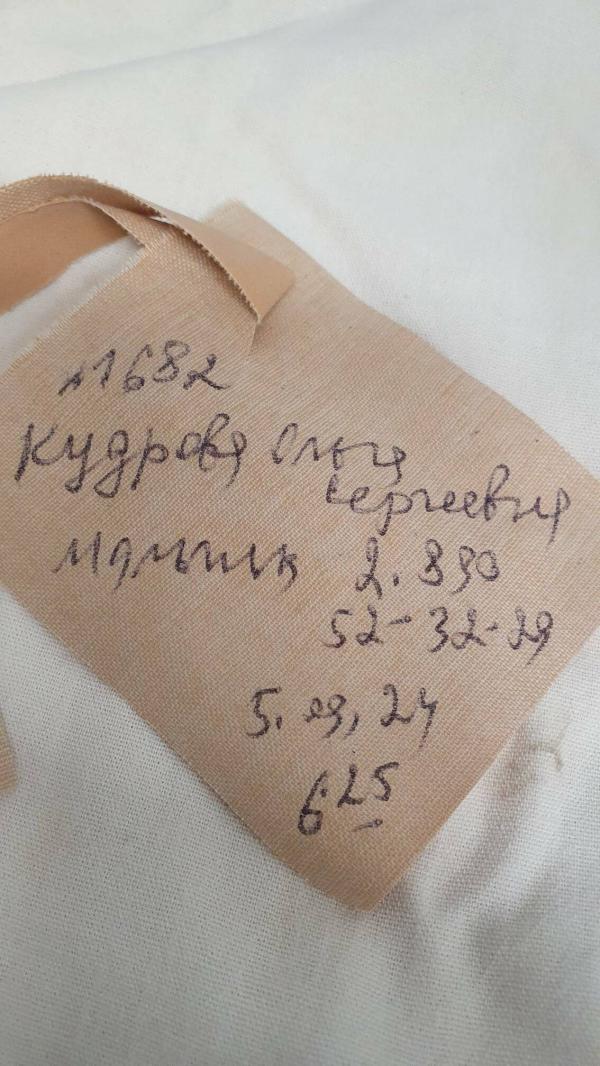 №1682
Кудрова Ольга
Сергеевна
Мальчик 2.830
52-32-29
5.09.24
6²⁵